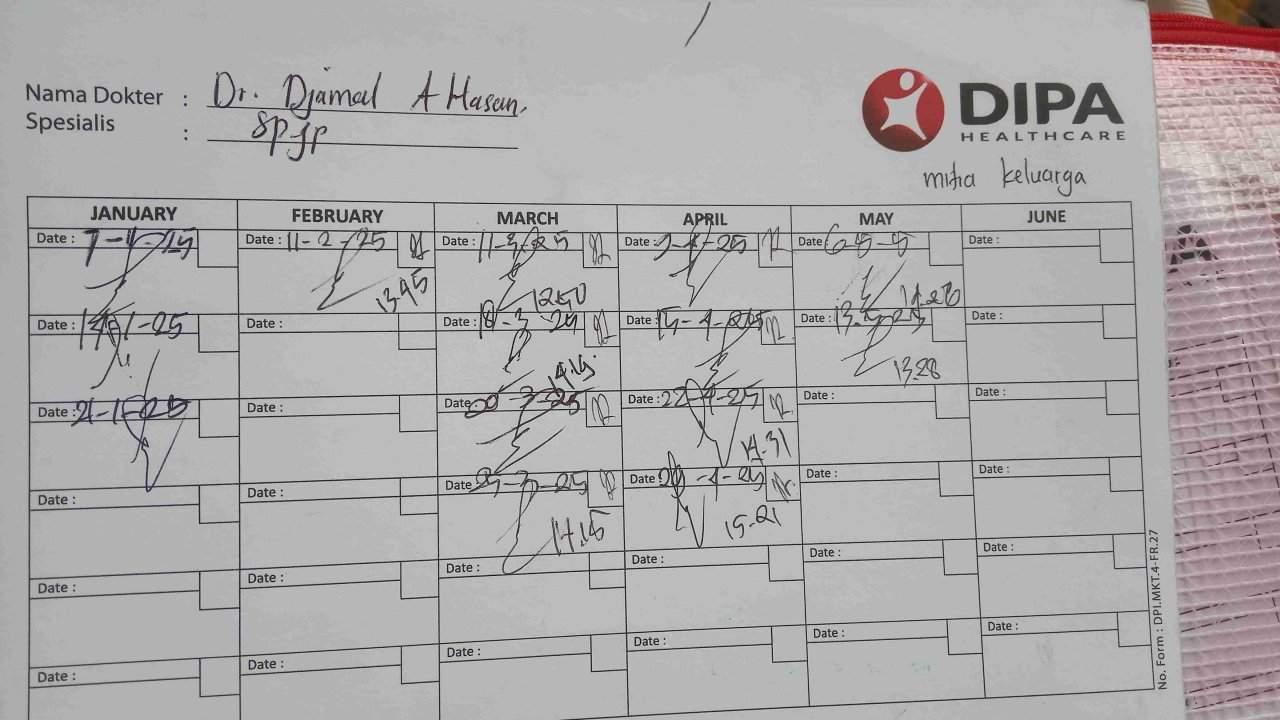 Nama Dokter : Dr. Djamal A Hasan,
Spesialis : SpJP
DIPA
HEALTHCARE
mitra keluarga
JANUARY FEBRUARY MARCH APRIL MAY JUNE
Date : 7-1-25 Date : 11-2-25 Date : 11-3-25 Date : -4-25 Date : Date :
13.45 12.50
Date : 14-1-25 Date : Date : 18-3-25 Date : 15-4-25 Date : 13-5-25 Date :
14.15 13.28
Date : 21-1-25 Date : Date : -3-25 Date : 22-4-25 Date : Date :
14.31
Date : Date : Date : 25-3-25 Date : -4-25 Date : Date :
14.15 15.21
Date : Date : Date : Date : Date : Date :
Date : Date : Date : Date : Date : Date :
No. Form : DPI.MKT.4-FR.27